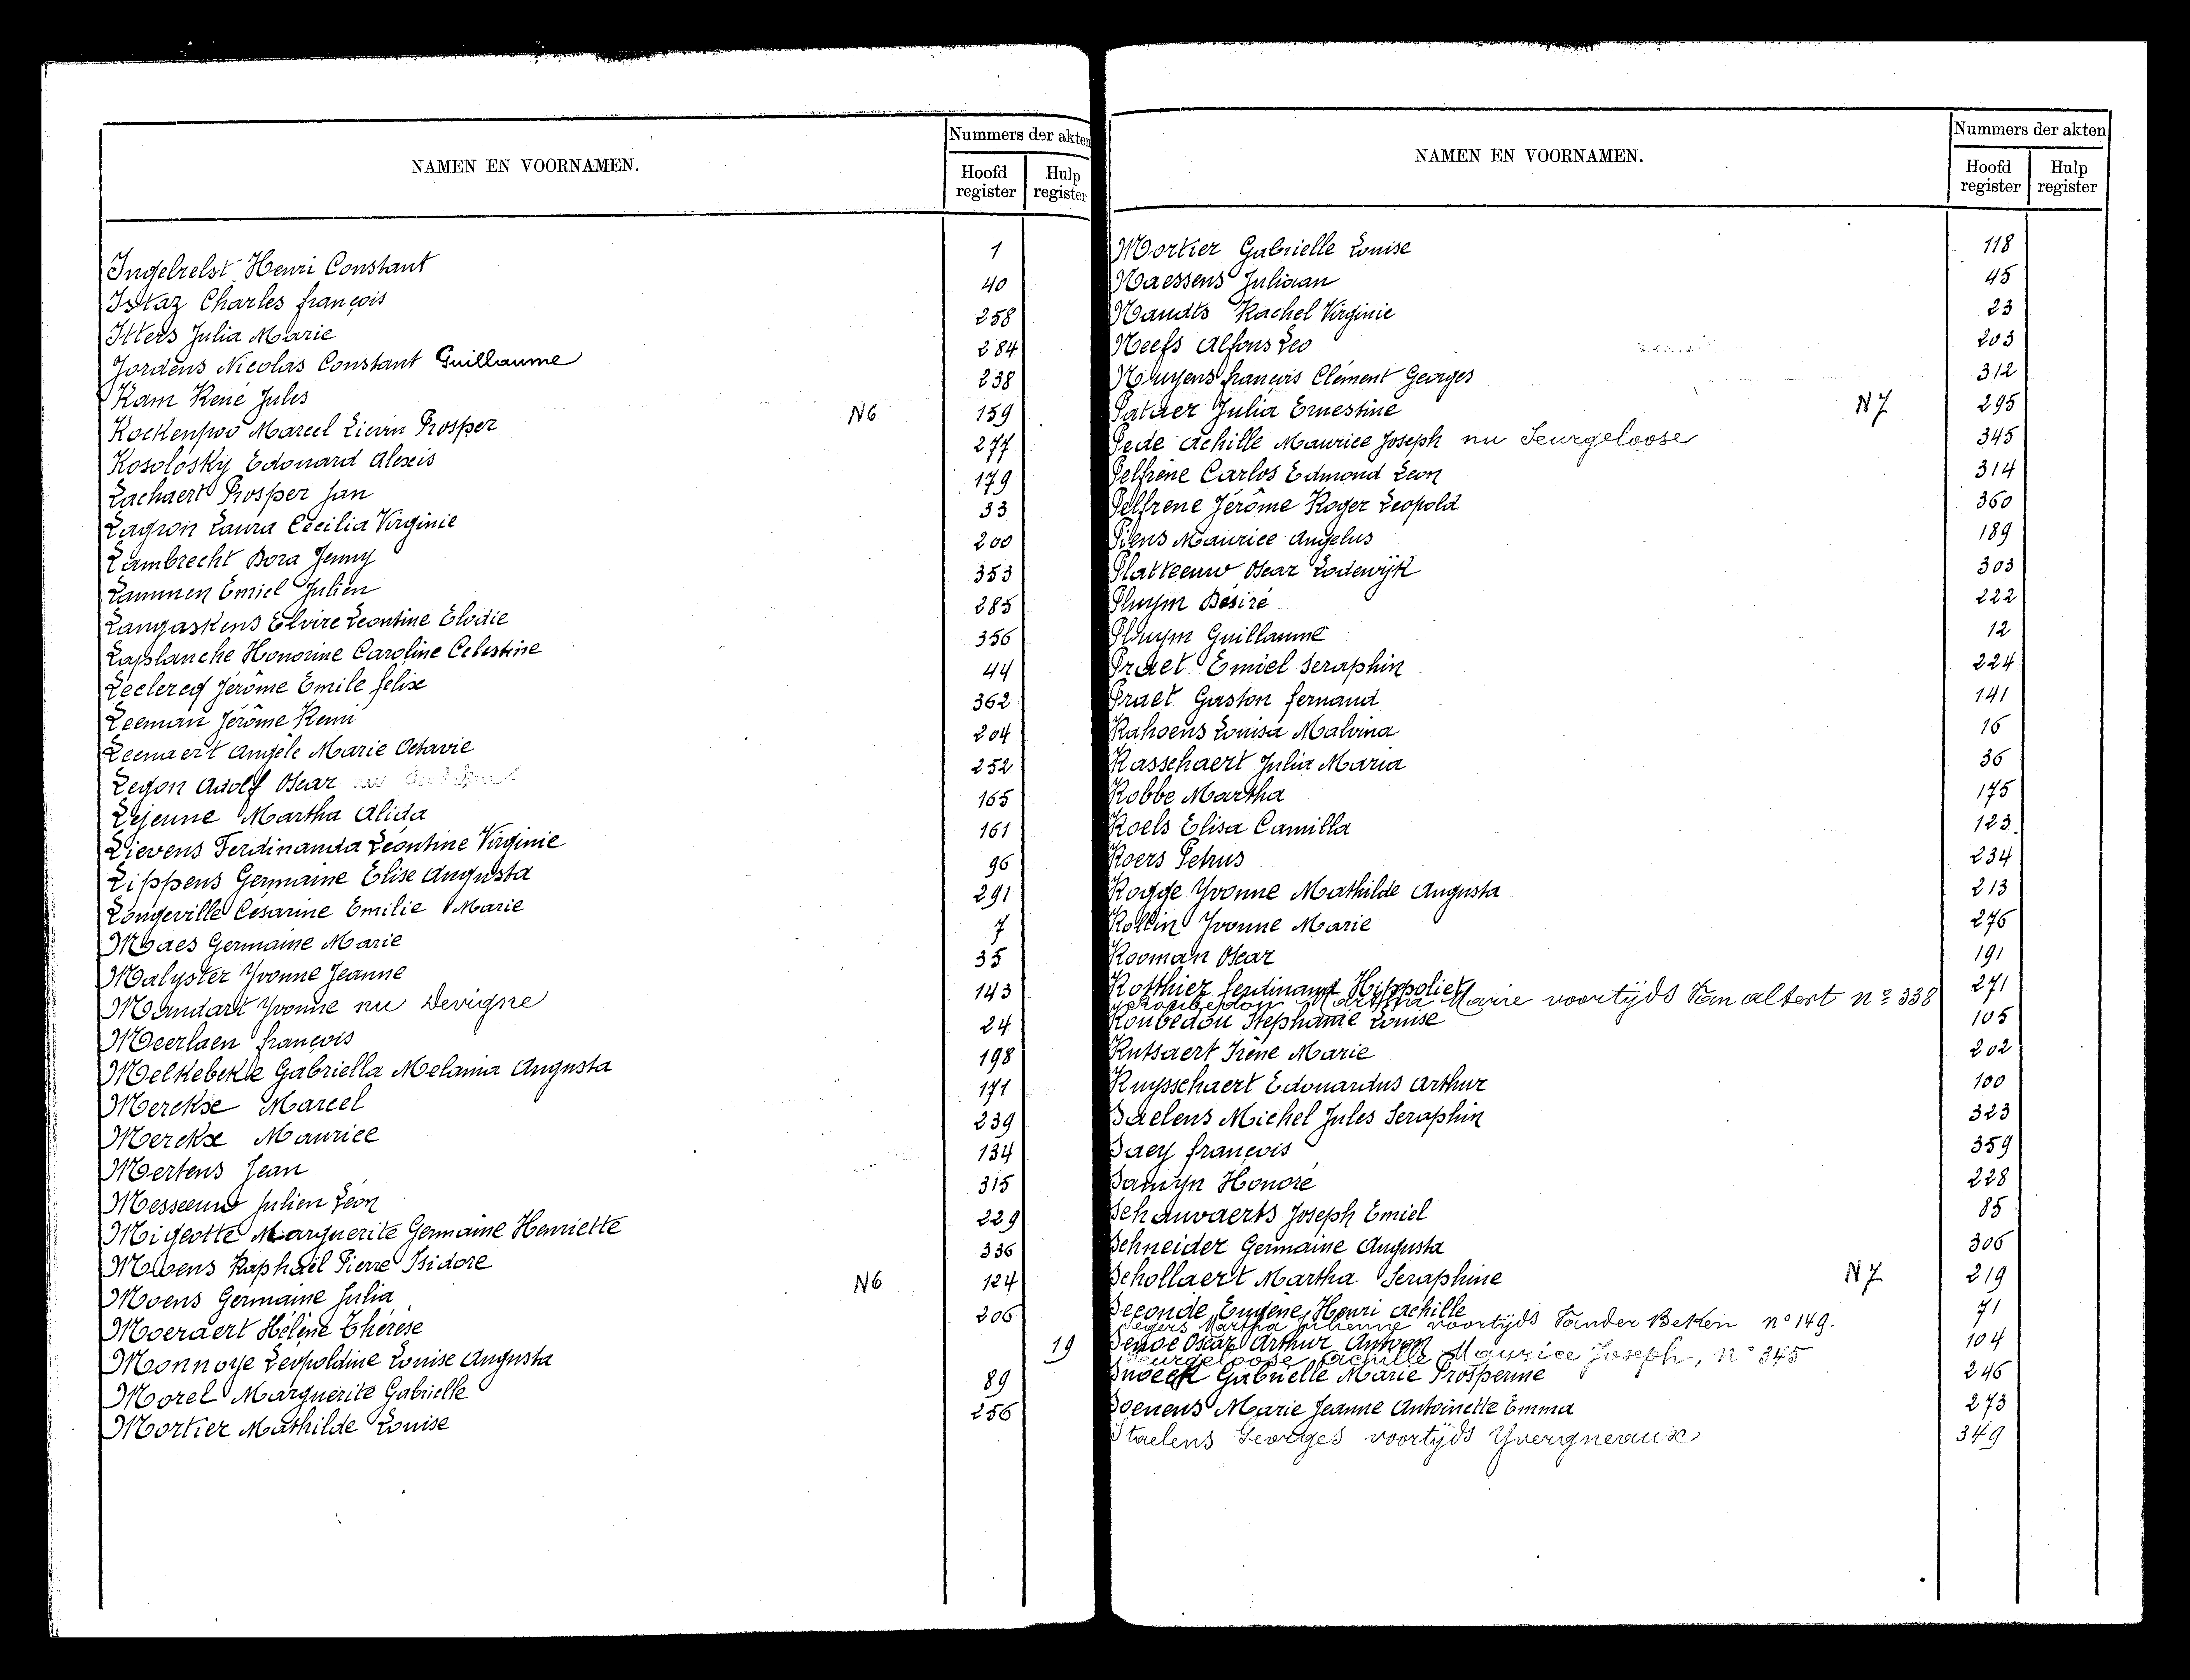 NAMEN EN VOORNAMEN.
Nummers der akten
Hoofd register
Hulp register
Ingelrelst Henri Constant 1
Istaz Charles françois 40
Itters Julia Marie 258
Jordens Nicolas Constant Guillaume 284
Kam René Jules 238
Kockenpoo Marcel Lievin Prosper N6 159
Kosolosky Edouard Alexis 277
Lachaert Prosper Jan 179
Lagron Laura Cecilia Virginie 33
Lambrecht Dora Jenny 200
Lammen Emiel Julien 353
Langaskens Elvire Leontine Elodie 285
Laplanche Honorine Caroline Celestine 356
Leclercq Jérôme Emile felix 44
Leeman Jérôme Remi 362
Leenaert Angèle Marie Octavie 204
Legon Adolf Oscar 252
Lejeune Martha Alida 165
Lievens Ferdinanda Léontine Virginie 161
Lippens Germaine Elise Augusta 96
Longeville Césarine Emilie Marie 291
Maes Germaine Marie 7
Malyster Yvonne Jeanne 35
Mandart Yvonne nu Devigne 143
Meerlaen françois 24
Melkebeke Gabriella Melania Augusta 198
Merckx Marcel 171
Merckx Maurice 239
Mertens Jean 134
Messeeuw Julien Léon 315
Migeotte Marguerite Germaine Henriette 229
Moens Raphaël Pierre Isidore 336
Moens Germaine Julia N6 124
Moeraert Hélène Thérèse 206
Monnoye Leopoldine Louise Augusta 19
Morel Marguerite Gabrielle 89
Mortier Mathilde Louise 256
NAMEN EN VOORNAMEN.
Nummers der akten
Hoofd register
Hulp register
Mortier Gabrielle Louise 118
Naessens Juliaan 45
Naudts Rachel Virginie 23
Neefs Alfons Leo 203
Nuyens françois Clément Georges 312
Pataer Julia Ernestine N7 295
Pede Achille Maurice Joseph nu Seurgeloose 345
Pelfrène Carlos Edmond Leon 314
Pelfrene Jérôme Roger Leopold 360
Piens Maurice Angelus 189
Platteeuw Oscar Lodewijk 303
Pluym Désiré 222
Pluym Guillaume 12
Praet Emiel Seraphin 224
Praet Gaston fernand 141
Rahoens Louisa Malvina 16
Rasschaert Julia Maria 36
Robbe Martha 175
Roels Elisa Camilla 123
Roers Petrus 234
Rogge Yvonne Mathilde Augusta 213
Rollin Yvonne Marie 276
Rooman Oscar 191
Rotthier ferdinand Hippoliet 271
Roubedou Martha Marie voortijds Van Albert nº 338
Roubedou Stephanie Louise 105
Rutsaert Irène Marie 202
Ruysschaert Edouardus Arthur 100
Saelens Michel Jules Seraphin 323
Saey françois 359
Samyn Honoré 228
Schauvaerts Joseph Emiel 85
Schneider Germaine Augusta 306
Schollaert Martha Seraphine N7 219
Seconde Eugène Henri Achille 71
Segers Martha Julienne voortijds Vander Beken nº 149.
Senoe Oscar Arthur Antoon 104
Seurgeloose Achille Maurice Joseph, nº 345
Snoeck Gabrielle Marie Prosperine 246
Soenens Marie Jeanne Antoinette Emma 273
Staelens Georges voortijds Yvergneaux 349